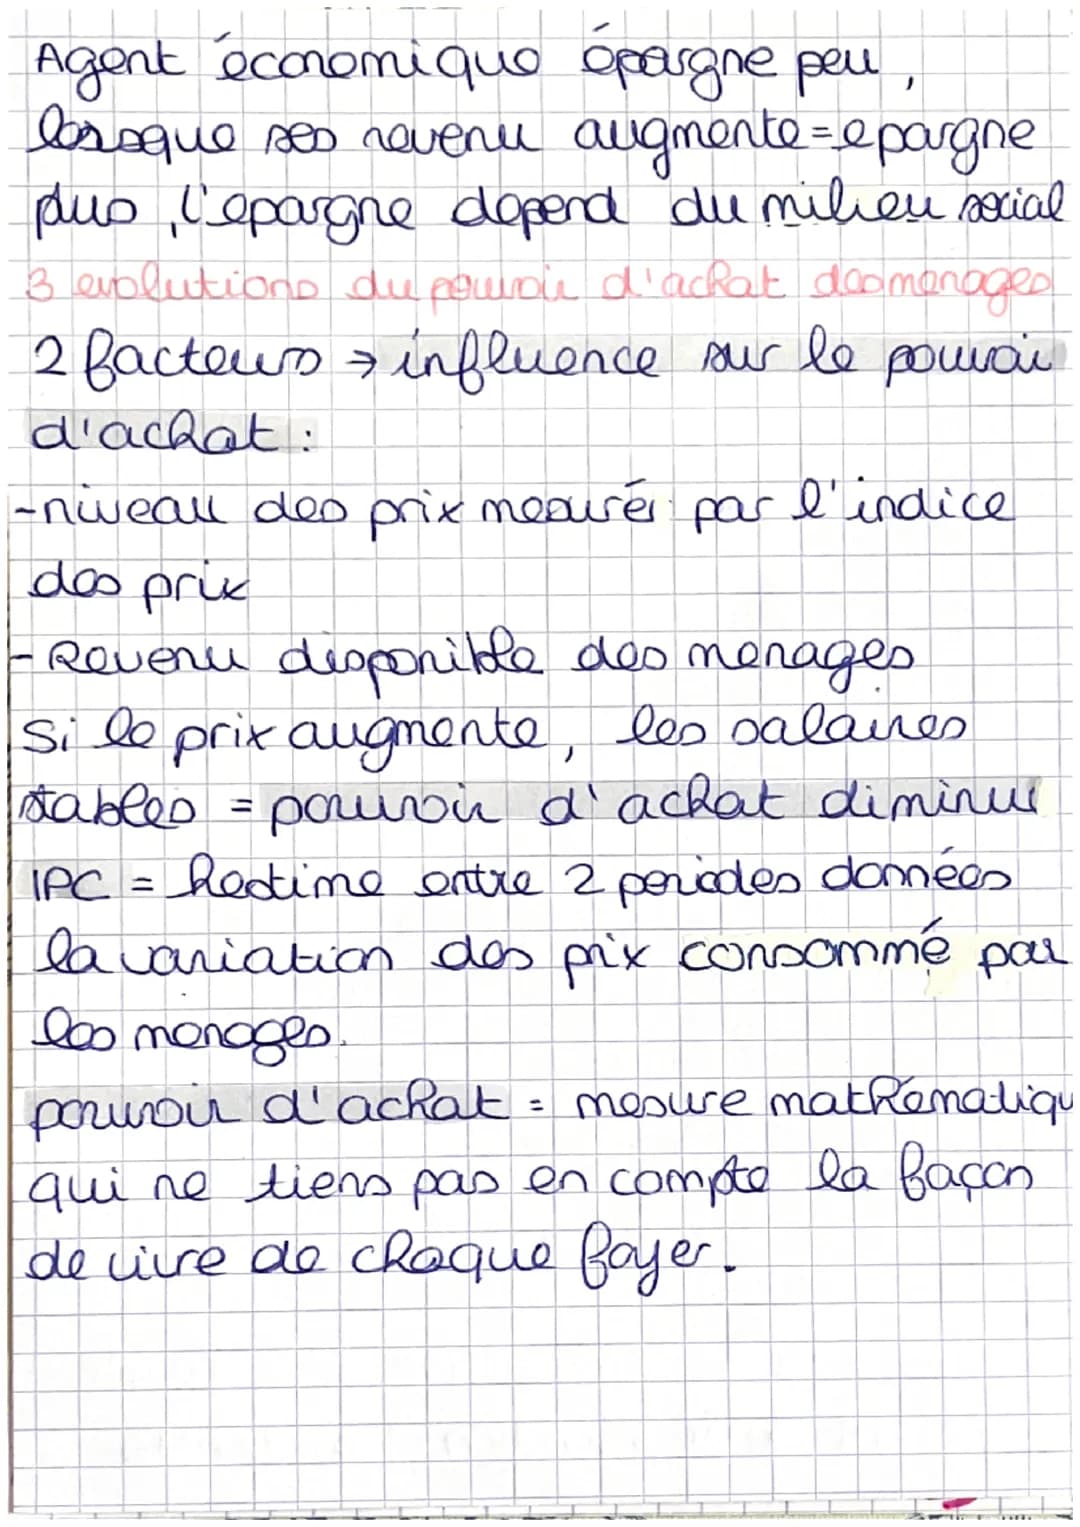 Agent économique épargne peu,
lorsque ses revenu augmente=epargne
plus, l'epargne depend du milieu social
3 evolutions du pouvoir d'achat des menages
2 facteurs → influence sur le pouvoir
d'achat :
-niveau des prix mesurés par l'indice
des prix
-Revenu disponible des menages
Si le prix augmente, les salaires
stables = pouvoir d'achat diminue
IPC = l'estime entre 2 periodes données
la variation des prix consommé par
les menages.
pouvoir d'achat = mesure mathématiqu
qui ne tiens pas en compte la façon
de vivre de chaque foyer.